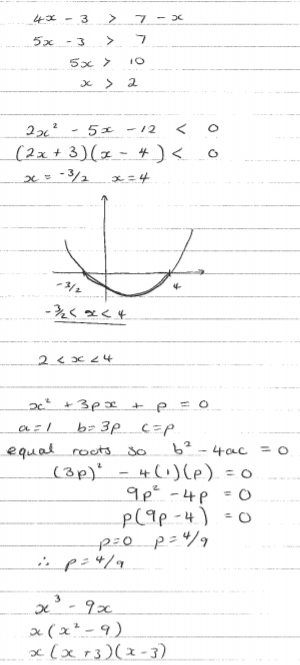 4x - 3 > 7 - x
5x - 3 > 7
5x > 10
x > 2
2x² - 5x - 12 < 0
(2x + 3)(x - 4) < 0
x = -3/2 x = 4
-3/2 4
-3/2 < x < 4
2 < x < 4
x² + 3px + p = 0
a=1 b=3p c=p
equal roots so b² - 4ac = 0
(3p)² - 4(1)(p) = 0
9p² - 4p = 0
p(9p - 4) = 0
p=0 p=4/9
∴ p=4/9
x³ - 9x
x(x² - 9)
x(x+3)(x-3)